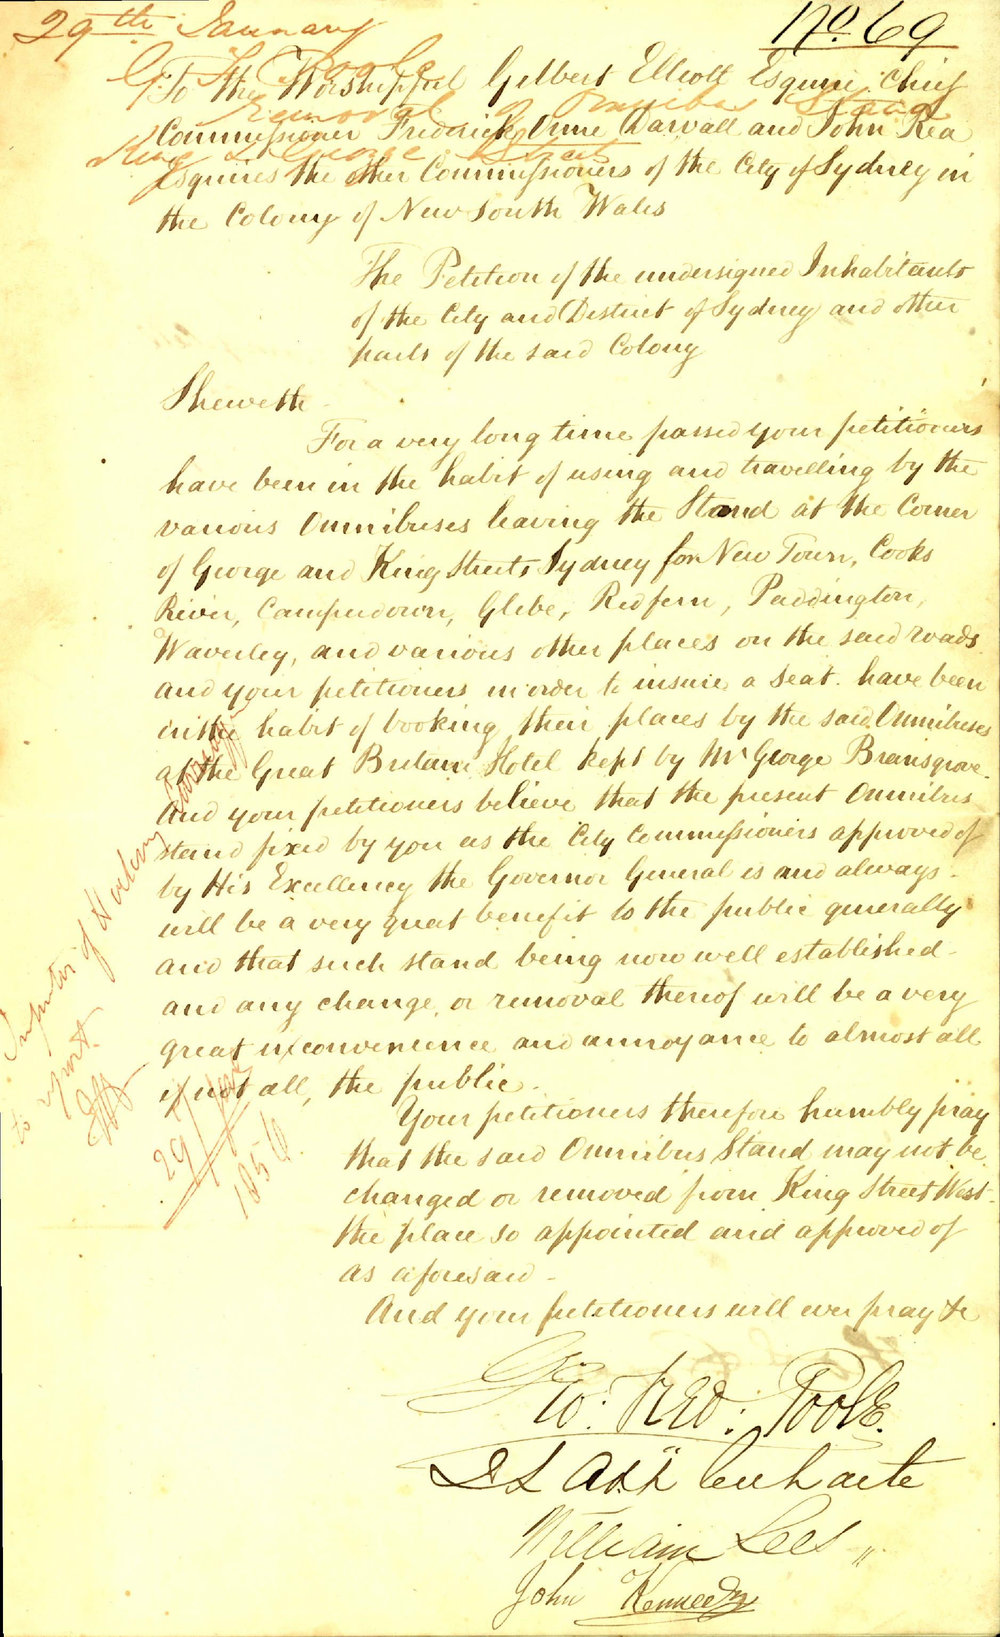 29th January
No. 69
G. F. Poole
Removal of Omnibus Stand
King & George Streets
To the Worshipful Gilbert Elliott Esquire Chief
Commissioner Frederick Orme Darvall and John Rea
Esquires the other Commissioners of the City of Sydney in
the Colony of New South Wales
The Petition of the undersigned Inhabitants
of the City and District of Sydney and other
parts of the said Colony
Sheweth
For a very long time passed your petitioners
have been in the habit of using and travelling by the
various Omnibuses leaving the Stand at the Corner
of George and King Streets Sydney for New Town, Cooks
River, Camperdown, Glebe, Redfern, Paddington,
Waverley, and various other places on the said roads
and your petitioners in order to insure a seat have been
in the habit of booking their places by the said Omnibuses
at the Great Britain Hotel kept by Mr George Bransgrove.
And your petitioners believe that the present Omnibus
stand fixed by you as the City Commissioners approved of
by His Excellency the Governor General is and always
will be a very great benefit to the public generally
and that such stand being now well established
and any change, or removal thereof will be a very
great inconvenience and annoyance to almost all
if not all, the public.
Your petitioners therefore humbly pray
that the said Omnibus Stand may not be
changed or removed from King Street West
the place so appointed and approved of
as aforesaid -
And your petitioners will ever pray &c
Geo: Fred: Poole.
William Lees
John Kennedy
Inspector of Hackney Carriages
to report.
29 Jan
1856